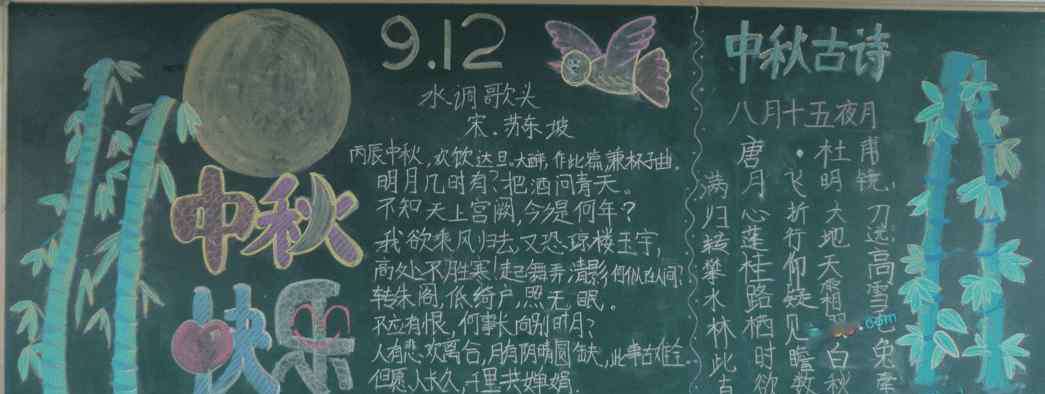 9.12
中秋
快乐
水.调歌头
宋.苏东坡
丙辰中秋,欢饮达旦.大醉,作此篇,兼怀子由.
明月几时有?把酒问青天。
不知天上宫阙,今夕是何年?
我欲乘风归去,又恐琼楼玉宇,
高处不胜寒!起舞弄清影何似在人间?
转朱阁,低绮户,照无眠。
不应有恨,何事长向别时月?
人有悲欢离合,月有阴晴圆缺,此事古难全.
但愿人长久,千里共婵娟.
中秋古诗
八月十五夜月
唐·杜甫
满月飞明镜,
归心折大刀
转蓬行地远
攀桂仰天高
水路疑霜雪
林栖见羽毛
此时瞻白兔
欲数秋
.com